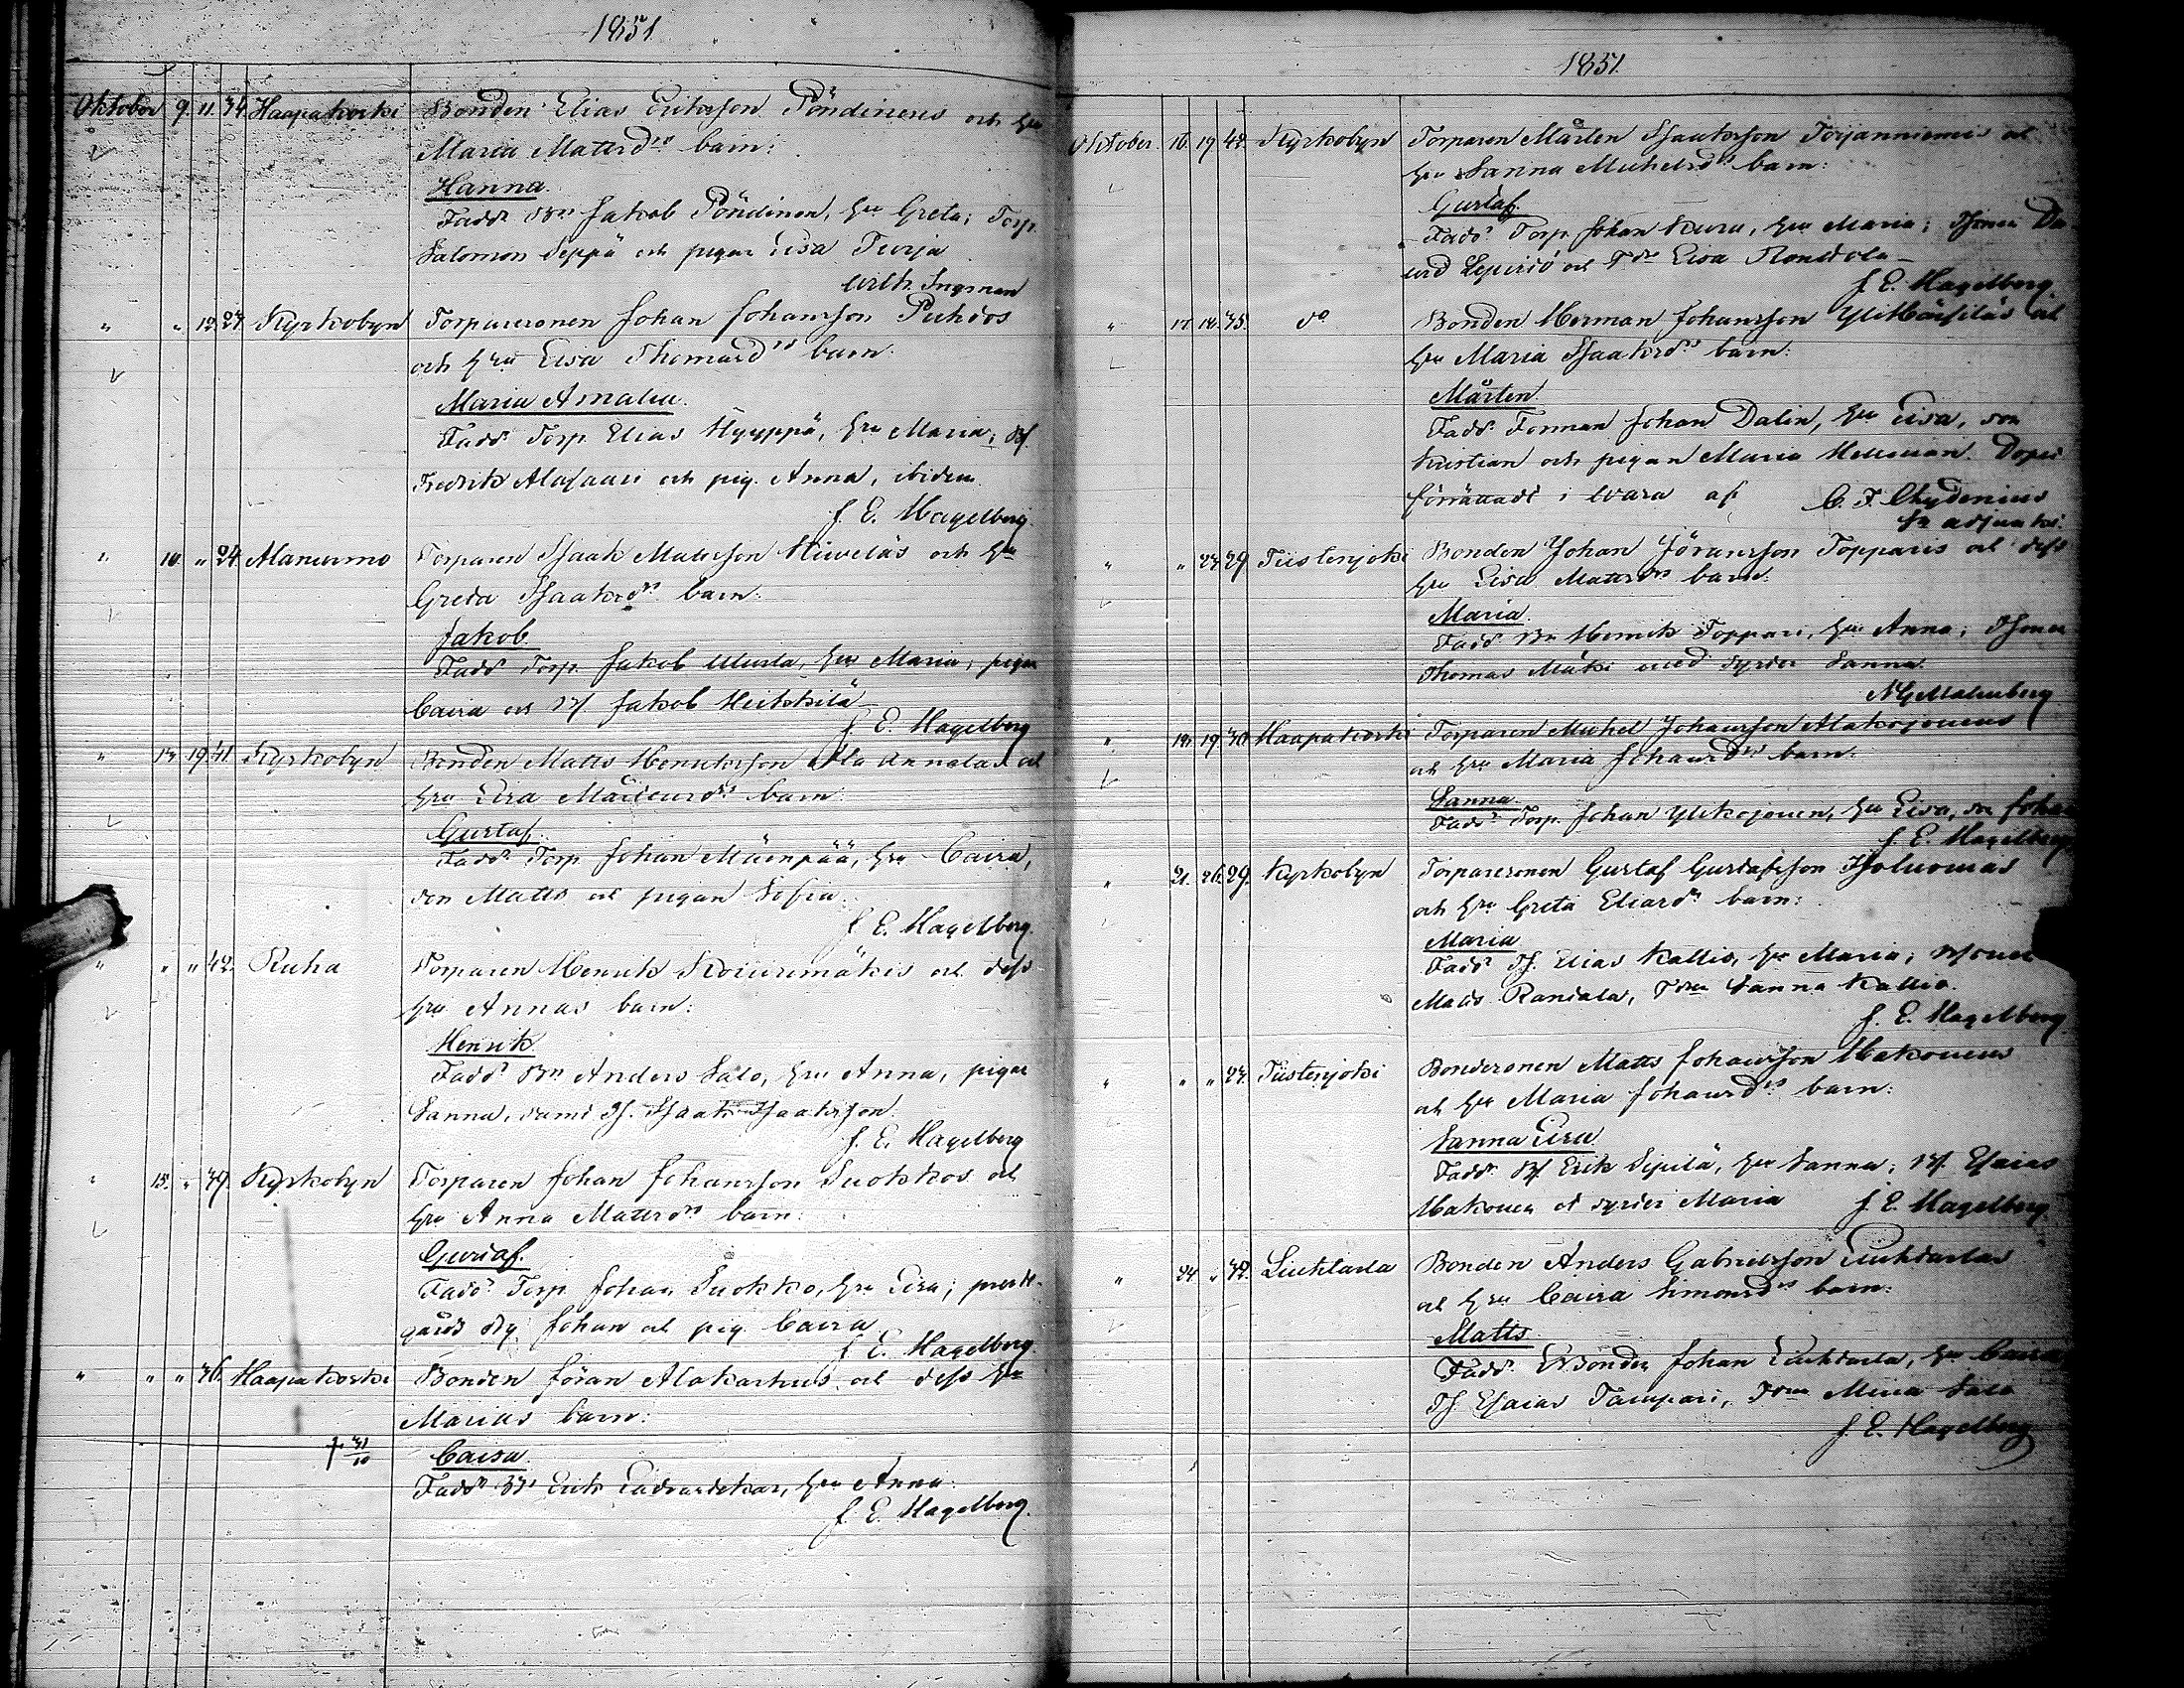 1851
Oktober 9. 11. 34. Haapakoski Bonden Elias Eriksson Pöndinens och hru
Maria Mattsd:rs barn:
Hanna.
Fadd: Bn Jakob Pöndinen, hru Greta; Torp.
Salomon Seppä och pigan Lisa Turja
Wilh. Ingman
" " 12. 27. Kyrkobyn Torparesonen Johan Johansson Puhdos
och hru Lisa Thomasd:rs barn:
Maria Amalia.
Fadd: Torp. Elias Hyyppä, hru Maria; Bs.
Fredrik Alasaari och pig. Anna, ibidem
J. E. Hagelberg.
" 10. " 24. Alanurmo Torparen Isaak Mattsson Hiiveläs och hru
Greta Isaaksd:rs barn:
Jakob.
Fadd: Torp. Jakob, hru Maria; pigan
Caisa och Bs. Jakob Heikkilä
J. E. Hagelberg
" 13. 19. 41. Kyrkobyn Bonden Matts Henriksson Ala Annalas och
hru Lisa barn:
Gustaf.
Fadd: Torp. Johan Mäenpää, hru Caisa,
son Matts och pigan Sofia.
J. E. Hagelberg.
" " " 42. Ruha Torparen Henrik Koivumäkis och dess
hru Annas barn:
Henrik.
Fadd: Bn Anders Salo, hru Anna, pigan
Sanna, samt Is. Isaak Isaaksson.
J. E. Hagelberg
" 15. " 39. Kyrkobyn Torparen Johan Johansson Suokkos och
hru Anna Mattsd:rs barn:
Gustaf.
Fadd: Torp. Johan Suokko, hru Lisa; prest-
gårds dg. Johan och pig. Caisa
J. E. Hagelberg.
" " " 36. Haapakoski Bonden Jöran Alakarhus och dess hru
Marias barn:
† 31/10 Caisa.
Fadd: Bn Erik, hru Anna.
J. E. Hagelberg.
1851.
Oktober. 16. 19. 42. Kyrkobyn Torparen Mårten Isaaksson Torjanniemis och
hru Sanna Michelsd:rs barn:
Gustaf.
Fadd: Torp. Johan Kuru, hru Maria;
och Lisa
J. E. Hagelberg
" 17. 18. 35. d:o Bonden Herman Johansson Yli Härsiläs och
hru Maria Isaaksd:rs barn:
Mårten.
Fadd: Johan Dalin, hru Lisa, son
Kristian och pigan Maria Dopet
förrättadt i Evara af C. F. Chydenius
adjunkt.
" " 27. 29. Tiistenjoki Bonden Johan Jöransson Topparis och dess
hru Lisa Mattsd:rs barn:
Maria.
Fadd: Bn Henrik Toppari, hru Anna;
Thomas Mäki med syster Sanna.
N G Malmberg
" 18. 19. 30. Haapakoski Torparen Michel Johansson Alakojonens
och hru Maria Johansd:rs barn:
Sanna.
Fadd: Torp. Johan Ylikojonen, hru Lisa, son Johan
J. E. Hagelberg
" 21. 26. 29. Kyrkobyn Torparesonen Gustaf Gustafsson Isoluomas
och hru Greta Eliasd:rs barn:
Maria
Fadd: Is. Elias Kallio, hru Maria;
Matts Rantala, Sanna Kallio.
J. E. Hagelberg
" " " 27. Tiistenjoki Bondesonen Matts Johansson Hakonens
och hru Maria Johansd:rs barn:
Sanna Lisa
Fadd: Bs. Erik Sipilä, hru Sanna; Bs. Esaias
Hakonen och syster Maria J. E. Hagelberg.
" 24. " 32. Liuhtarla Bonden Anders Gabrielsson Liuhtarlas
och hru Caisa Simonsd:rs barn:
Matts.
Fadd: Bonden Johan Liuhtarla, hru Caisa
Is. Esaias Tampari, Salo
J. E. Hagelberg